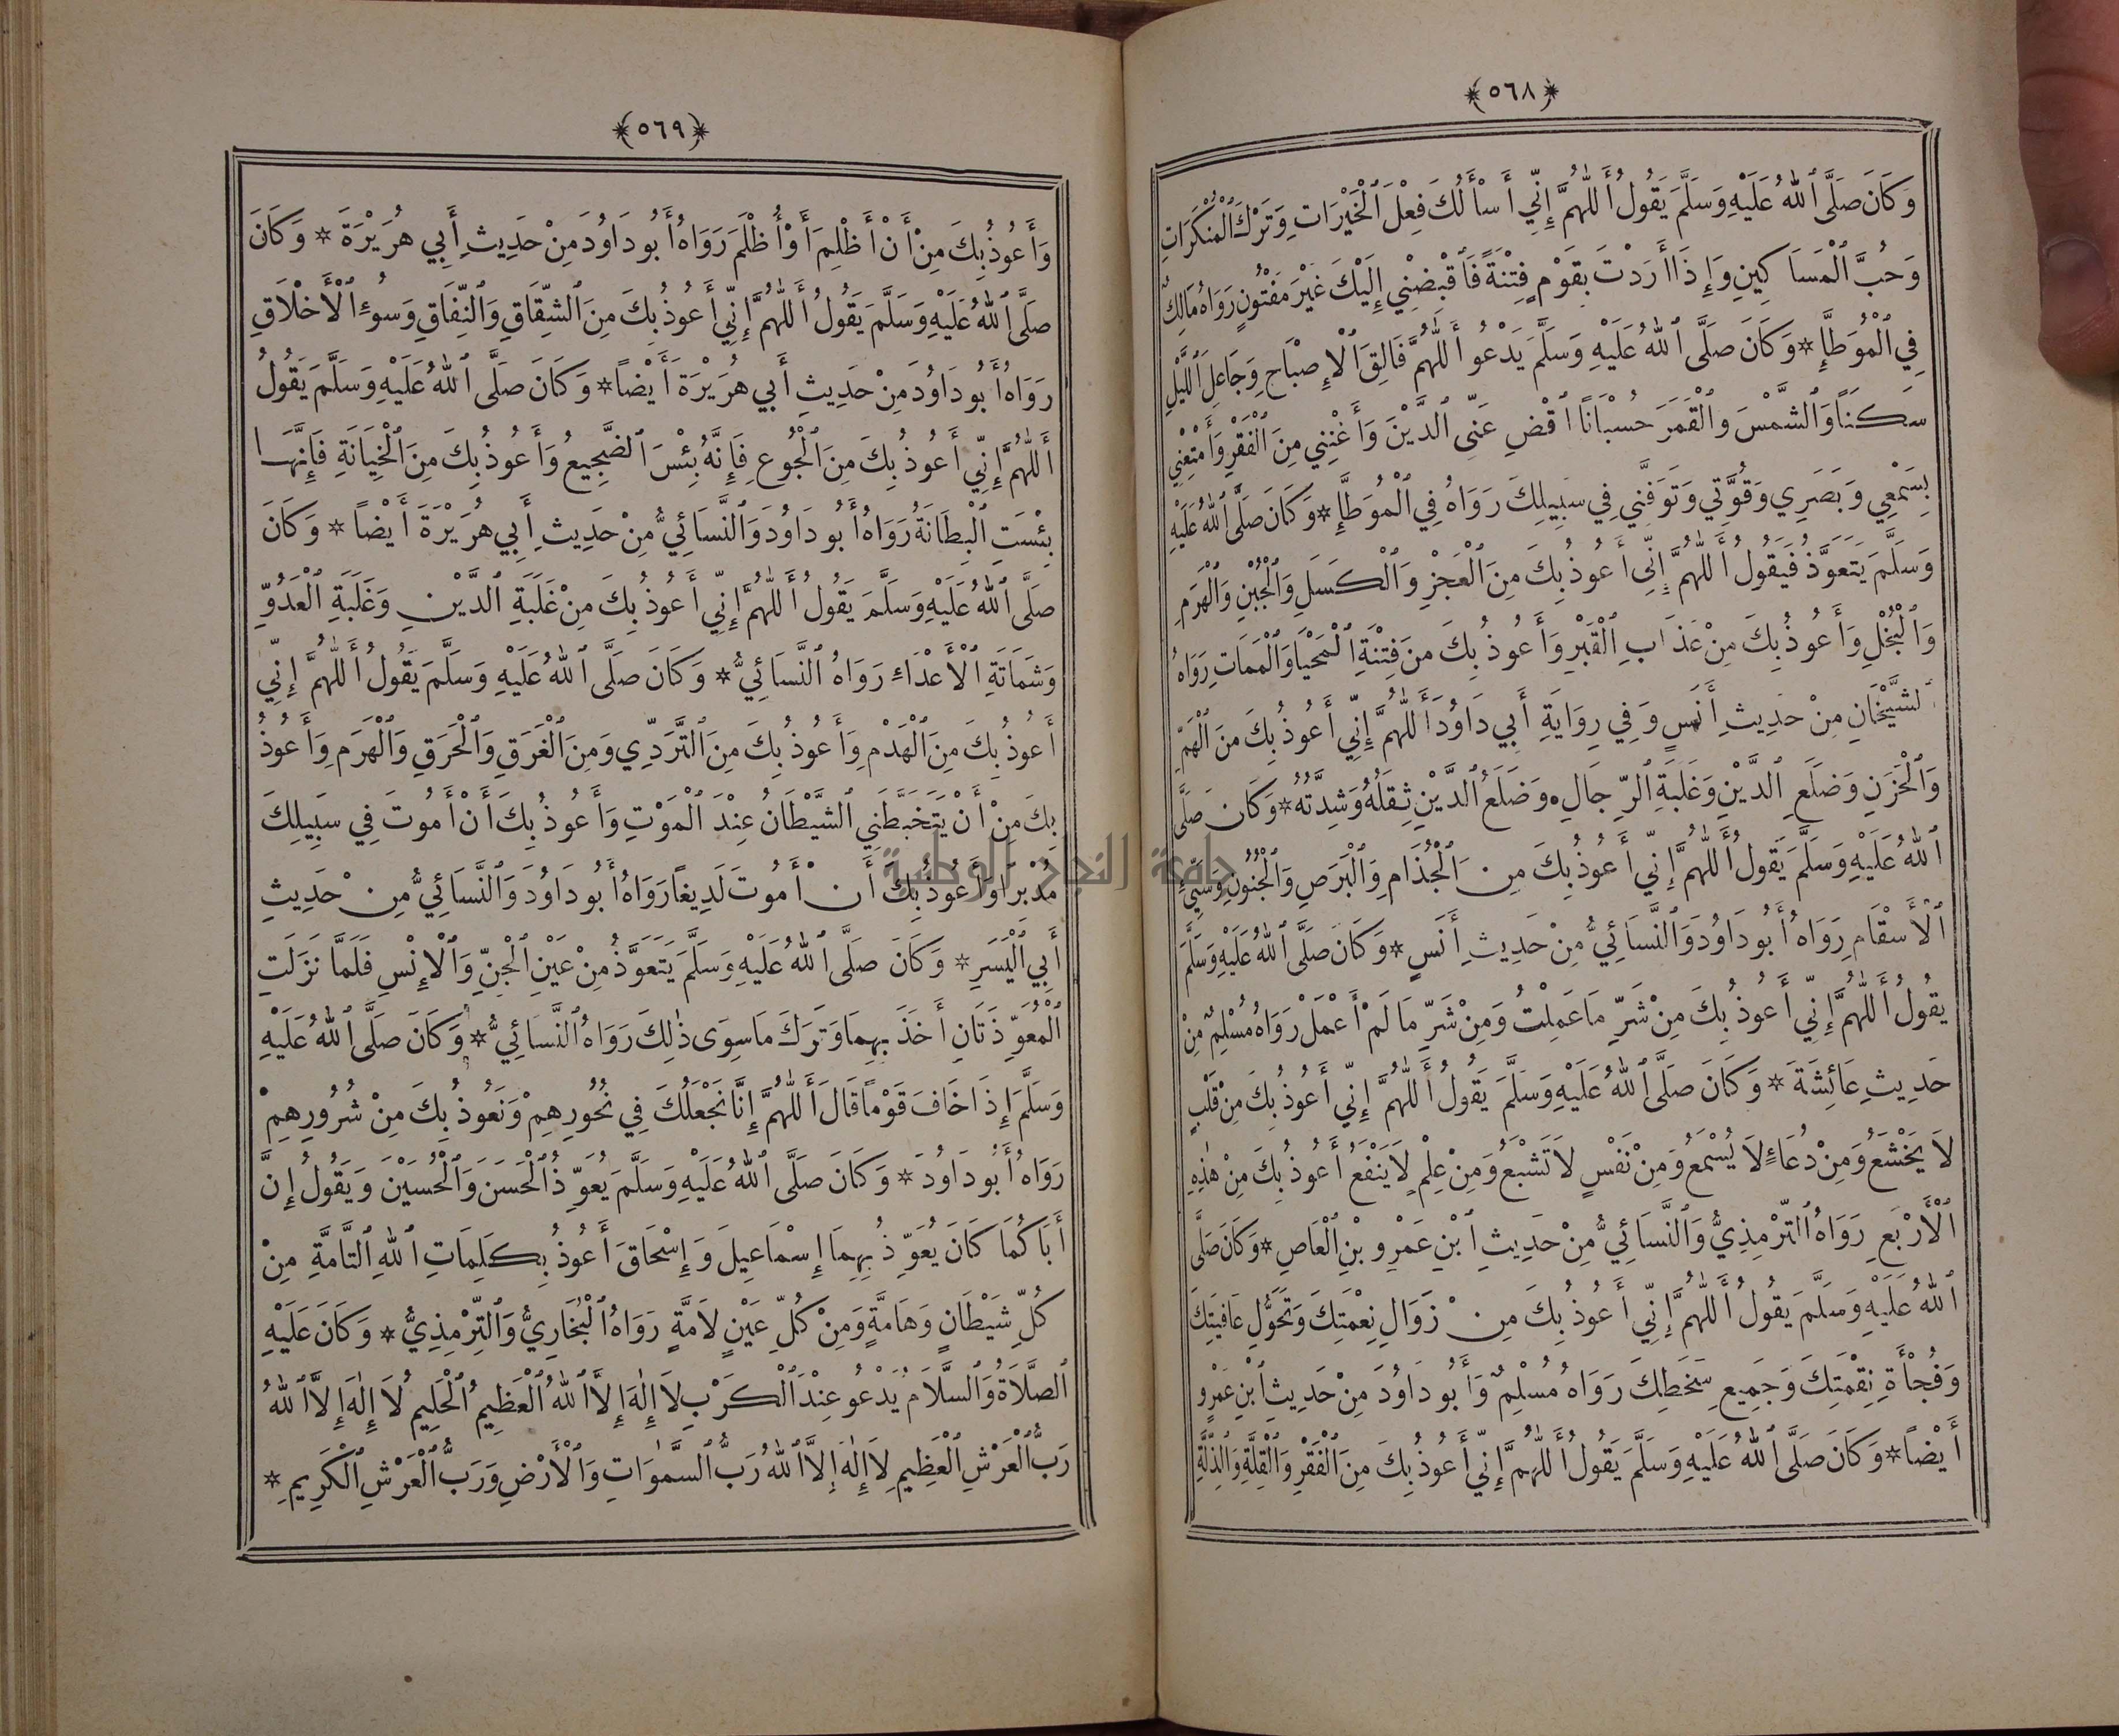 ﴿٥٦٨﴾
وَكَانَ صَلَّى ٱللهُ عَلَيْهِ وَسَلَّمَ يَقُولُ أَللّٰهُمَّ إِنِّي أَسْأَلُكَ فِعْلَ ٱلْخَيْرَاتِ وَتَرْكَ ٱلْمُنْكَرَاتِ
وَحُبَّ ٱلْمَسَاكِينِ وَإِذَا أَرَدْتَ بِقَوْمٍ فِتْنَةً فَٱقْبِضْنِي إِلَيْكَ غَيْرَ مَفْتُونٍ رَوَاهُ مَالِكٌ
فِي ٱلْمُوَطَّإِ * وَكَانَ صَلَّى ٱللهُ عَلَيْهِ وَسَلَّمَ يَدْعُو أَللّٰهُمَّ فَالِقَ ٱلْإِصْبَاحِ وَجَاعِلَ ٱللَّيْلِ
سَكَنًا وَٱلشَّمْسَ وَٱلْقَمَرَ حُسْبَانًا ٱقْضِ عَنِّي ٱلدَّيْنَ وَأَغْنِنِي مِنَ ٱلْفَقْرِ وَأَمْتِعْنِي
بِسَمْعِي وَبَصَرِي وَقُوَّتِي وَتَوَفَّنِي فِي سَبِيلِكَ رَوَاهُ فِي ٱلْمُوَطَّإِ * وَكَانَ صَلَّى ٱللهُ عَلَيْهِ
وَسَلَّمَ يَتَعَوَّذُ فَيَقُولُ أَللّٰهُمَّ إِنِّي أَعُوذُ بِكَ مِنَ ٱلْعَجْزِ وَٱلْكَسَلِ وَٱلْجُبْنِ وَٱلْهَرَمِ
وَٱلْبُخْلِ وَأَعُوذُ بِكَ مِنْ عَذَابِ ٱلْقَبْرِ وَأَعُوذُ بِكَ مِنْ فِتْنَةِ ٱلْمَحْيَا وَٱلْمَمَاتِ رَوَاهُ
ٱلشَّيْخَانِ مِنْ حَدِيثِ أَنَسٍ وَفِي رِوَايَةِ أَبِي دَاوُدَ أَللّٰهُمَّ إِنِّي أَعُوذُ بِكَ مِنَ ٱلْهَمِّ
وَٱلْحَزَنِ وَضَلَعِ ٱلدَّيْنِ وَغَلَبَةِ ٱلرِّجَالِ، وَضَلَعُ ٱلدَّيْنِ ثِقَلُهُ وَشِدَّتُهُ * وَكَانَ صَلَّى
ٱللهُ عَلَيْهِ وَسَلَّمَ يَقُولُ أَللّٰهُمَّ إِنِّي أَعُوذُ بِكَ مِنَ ٱلْجُذَامِ وَٱلْبَرَصِ وَٱلْجُنُونِ وَسَيِّئِ
ٱلْأَسْقَامِ رَوَاهُ أَبُو دَاوُدَ وَٱلنَّسَائِيُّ مِنْ حَدِيثِ أَنَسٍ * وَكَانَ صَلَّى ٱللهُ عَلَيْهِ وَسَلَّمَ
يَقُولُ أَللّٰهُمَّ إِنِّي أَعُوذُ بِكَ مِنْ شَرِّ مَا عَمِلْتُ وَمِنْ شَرِّ مَا لَمْ أَعْمَلْ رَوَاهُ مُسْلِمٌ مِنْ
حَدِيثِ عَائِشَةَ * وَكَانَ صَلَّى ٱللهُ عَلَيْهِ وَسَلَّمَ يَقُولُ أَللّٰهُمَّ إِنِّي أَعُوذُ بِكَ مِنْ قَلْبٍ
لَا يَخْشَعُ وَمِنْ دُعَاءٍ لَا يُسْمَعُ وَمِنْ نَفْسٍ لَا تَشْبَعُ وَمِنْ عِلْمٍ لَا يَنْفَعُ أَعُوذُ بِكَ مِنْ هٰذِهِ
ٱلْأَرْبَعِ رَوَاهُ ٱلتِّرْمِذِيُّ وَٱلنَّسَائِيُّ مِنْ حَدِيثِ ٱبْنِ عَمْرِو بْنِ ٱلْعَاصِ * وَكَانَ صَلَّى
ٱللهُ عَلَيْهِ وَسَلَّمَ يَقُولُ أَللّٰهُمَّ إِنِّي أَعُوذُ بِكَ مِنْ زَوَالِ نِعْمَتِكَ وَتَحَوُّلِ عَافِيَتِكَ
وَفُجْأَةِ نِقْمَتِكَ وَجَمِيعِ سَخَطِكَ رَوَاهُ مُسْلِمٌ وَأَبُو دَاوُدَ مِنْ حَدِيثِ ٱبْنِ عَمْرٍو
أَيْضاً * وَكَانَ صَلَّى ٱللهُ عَلَيْهِ وَسَلَّمَ يَقُولُ أَللّٰهُمَّ إِنِّي أَعُوذُ بِكَ مِنَ ٱلْفَقْرِ وَٱلْقِلَّةِ وَٱلذِّلَّةِ
﴿٥٦٩﴾
وَأَعُوذُ بِكَ مِنْ أَنْ أَظْلِمَ أَوْ أُظْلَمَ رَوَاهُ أَبُو دَاوُدَ مِنْ حَدِيثِ أَبِي هُرَيْرَةَ * وَكَانَ
صَلَّى ٱللهُ عَلَيْهِ وَسَلَّمَ يَقُولُ أَللّٰهُمَّ إِنِّي أَعُوذُ بِكَ مِنَ ٱلشِّقَاقِ وَٱلنِّفَاقِ وَسُوءِ ٱلْأَخْلَاقِ
رَوَاهُ أَبُو دَاوُدَ مِنْ حَدِيثِ أَبِي هُرَيْرَةَ أَيْضاً * وَكَانَ صَلَّى ٱللهُ عَلَيْهِ وَسَلَّمَ يَقُولُ
أَللّٰهُمَّ إِنِّي أَعُوذُ بِكَ مِنَ ٱلْجُوعِ فَإِنَّهُ بِئْسَ ٱلضَّجِيعُ وَأَعُوذُ بِكَ مِنَ ٱلْخِيَانَةِ فَإِنَّهَا
بِئْسَتِ ٱلْبِطَانَةُ رَوَاهُ أَبُو دَاوُدَ وَٱلنَّسَائِيُّ مِنْ حَدِيثِ أَبِي هُرَيْرَةَ أَيْضاً * وَكَانَ
صَلَّى ٱللهُ عَلَيْهِ وَسَلَّمَ يَقُولُ أَللّٰهُمَّ إِنِّي أَعُوذُ بِكَ مِنْ غَلَبَةِ ٱلدَّيْنِ وَغَلَبَةِ ٱلْعَدُوِّ
وَشَمَاتَةِ ٱلْأَعْدَاءِ رَوَاهُ ٱلنَّسَائِيُّ * وَكَانَ صَلَّى ٱللهُ عَلَيْهِ وَسَلَّمَ يَقُولُ أَللّٰهُمَّ إِنِّي
أَعُوذُ بِكَ مِنَ ٱلْهَدْمِ وَأَعُوذُ بِكَ مِنَ ٱلتَّرَدِّي وَمِنَ ٱلْغَرَقِ وَٱلْحَرَقِ وَٱلْهَرَمِ وَأَعُوذُ
بِكَ مِنْ أَنْ يَتَخَبَّطَنِي ٱلشَّيْطَانُ عِنْدَ ٱلْمَوْتِ وَأَعُوذُ بِكَ أَنْ أَمُوتَ فِي سَبِيلِكَ
مُدْبِراً وَأَعُوذُ بِكَ أَنْ أَمُوتَ لَدِيغاً رَوَاهُ أَبُو دَاوُدَ وَٱلنَّسَائِيُّ مِنْ حَدِيثِ
أَبِي ٱلْيَسَرِ * وَكَانَ صَلَّى ٱللهُ عَلَيْهِ وَسَلَّمَ يَتَعَوَّذُ مِنْ عَيْنِ ٱلْجِنِّ وَٱلْإِنْسِ فَلَمَّا نَزَلَتِ
ٱلْمُعَوِّذَتَانِ أَخَذَ بِهِمَا وَتَرَكَ مَا سِوَى ذٰلِكَ رَوَاهُ ٱلنَّسَائِيُّ * وَكَانَ صَلَّى ٱللهُ عَلَيْهِ
وَسَلَّمَ إِذَا خَافَ قَوْماً قَالَ أَللّٰهُمَّ إِنَّا نَجْعَلُكَ فِي نُحُورِهِمْ وَنَعُوذُ بِكَ مِنْ شُرُورِهِمْ
رَوَاهُ أَبُو دَاوُدَ * وَكَانَ صَلَّى ٱللهُ عَلَيْهِ وَسَلَّمَ يُعَوِّذُ ٱلْحَسَنَ وَٱلْحُسَيْنَ وَيَقُولُ إِنَّ
أَبَاكُمَا كَانَ يُعَوِّذُ بِهِمَا إِسْمَاعِيلَ وَإِسْحَاقَ أَعُوذُ بِكَلِمَاتِ ٱللهِ ٱلتَّامَّةِ مِنْ
كُلِّ شَيْطَانٍ وَهَامَّةٍ وَمِنْ كُلِّ عَيْنٍ لَامَّةٍ رَوَاهُ ٱلْبُخَارِيُّ وَٱلتِّرْمِذِيُّ * وَكَانَ عَلَيْهِ
ٱلصَّلَاةُ وَٱلسَّلَامُ يَدْعُو عِنْدَ ٱلْكَرْبِ لَا إِلٰهَ إِلَّا ٱللهُ ٱلْعَظِيمُ ٱلْحَلِيمُ لَا إِلٰهَ إِلَّا ٱللهُ
رَبُّ ٱلْعَرْشِ ٱلْعَظِيمِ لَا إِلٰهَ إِلَّا ٱللهُ رَبُّ ٱلسَّمٰوَاتِ وَٱلْأَرْضِ وَرَبُّ ٱلْعَرْشِ ٱلْكَرِيمِ *
جامعة النجاح الوطنية